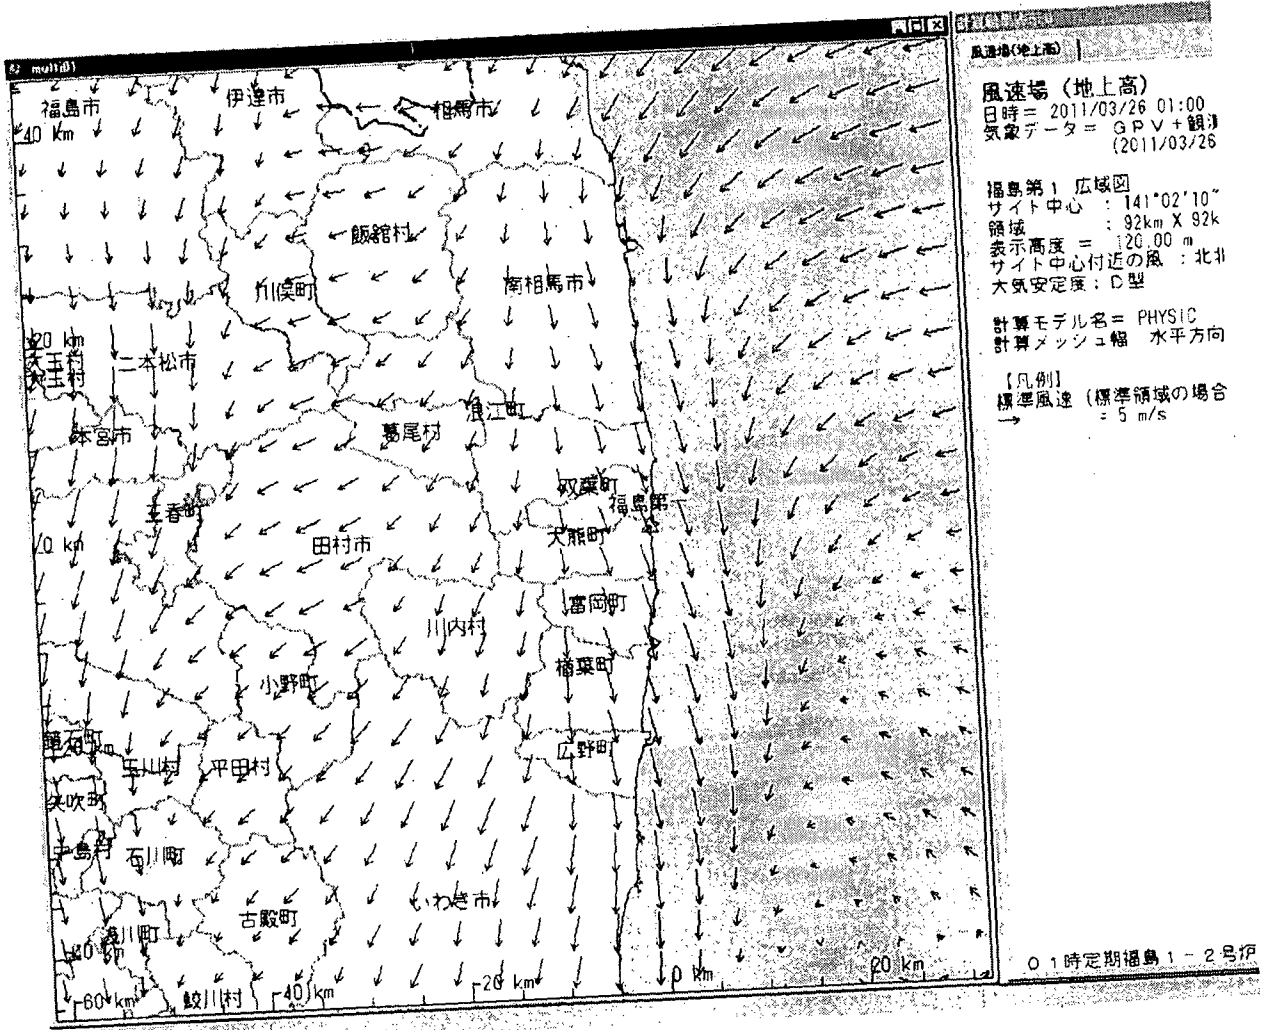 multi01
福島市
伊達市
相馬市
40 km
飯舘村
川俣町
南相馬市
20 km
大玉村
大玉村
二本松市
本宮市
浪江町
葛尾村
双葉町
福島第一
三春町
0 km
田村市
大熊町
富岡町
川内村
楢葉町
小野町
鏡石町
広野町
玉川村
平田村
矢吹町
中島村
石川町
いわき市
古殿町
浅川町
-60 km
鮫川村
-40 km
-20 km
0 km
20 km
風速場(地上高)
風速場(地上高)
日時= 2011/03/26 01:00
気象データ= GPV+観測
(2011/03/26
福島第1 広域図
サイト中心 : 141°02'10"
領域 : 92km X 92k
表示高度 = 120.00 m
サイト中心付近の風 : 北北
大気安定度:D型
計算モデル名= PHYSIC
計算メッシュ幅 水平方向
【凡例】
標準風速(標準領域の場合
→ = 5 m/s
01時定期福島1-2号炉